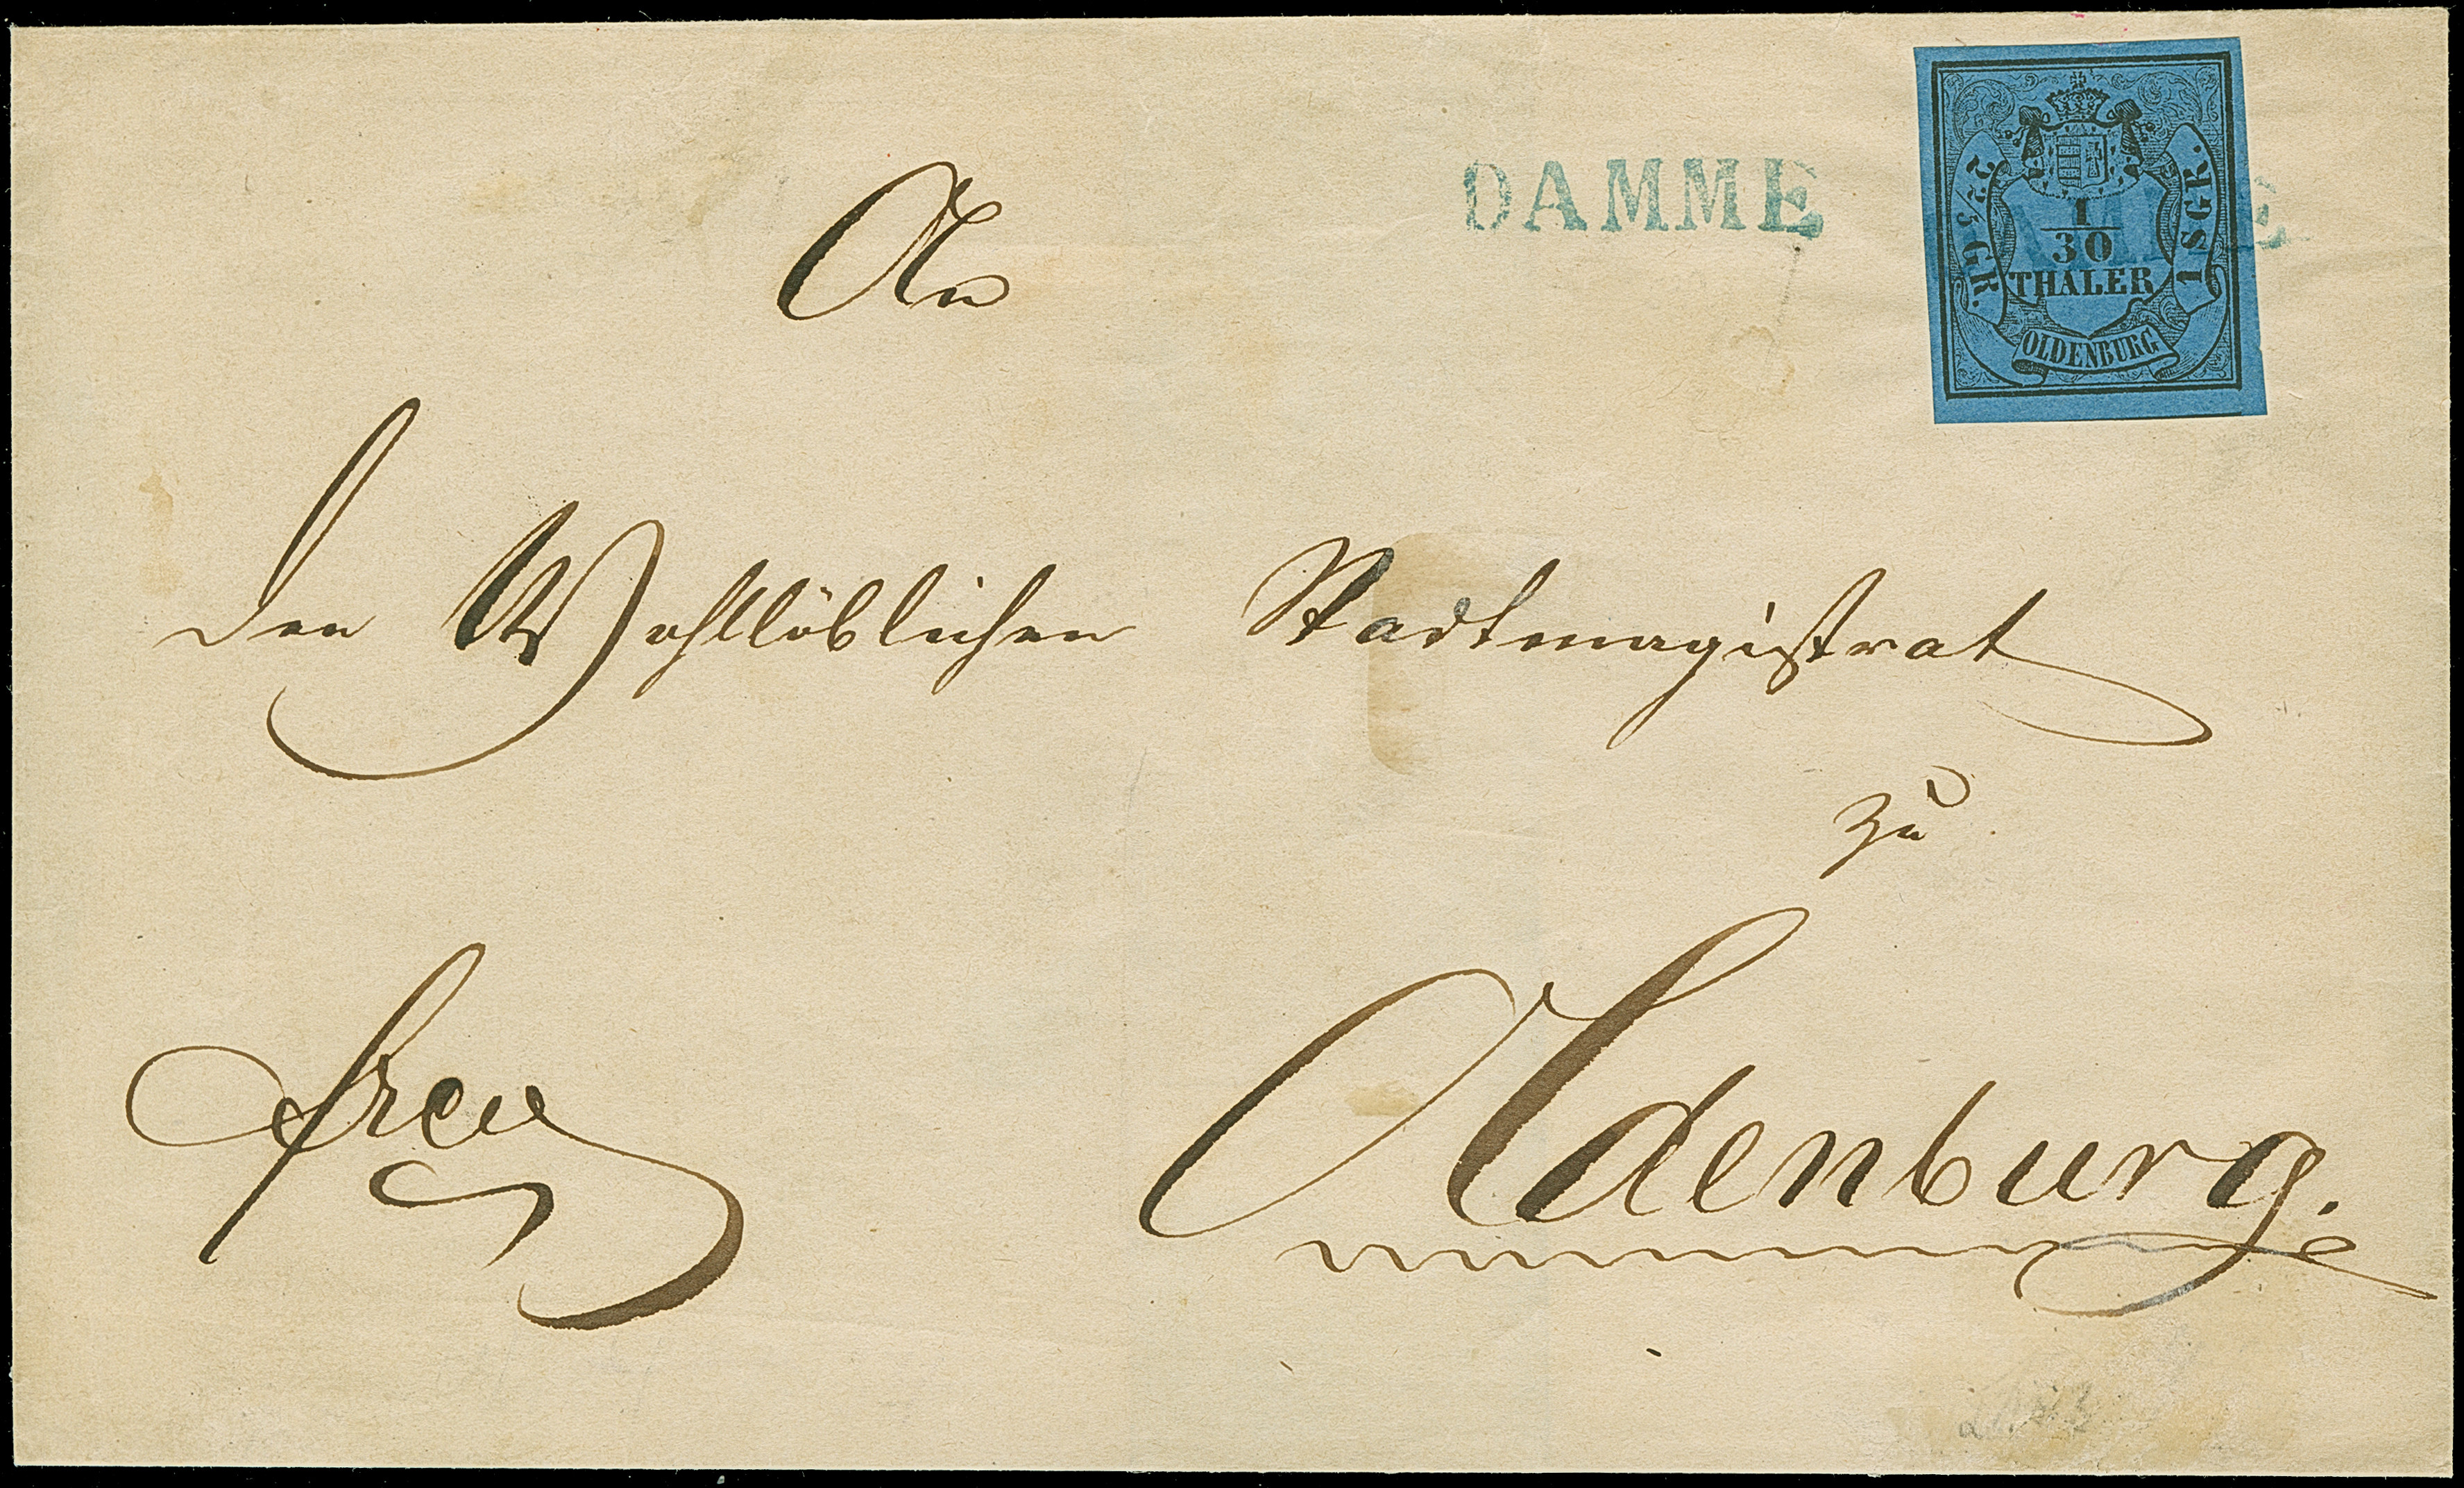 DAMME
2 2/5 GR.
1/30
THALER
1 SGR.
OLDENBURG
An
den Wohllöblichen Stadtmagistrat
zu
frey
Oldenburg.